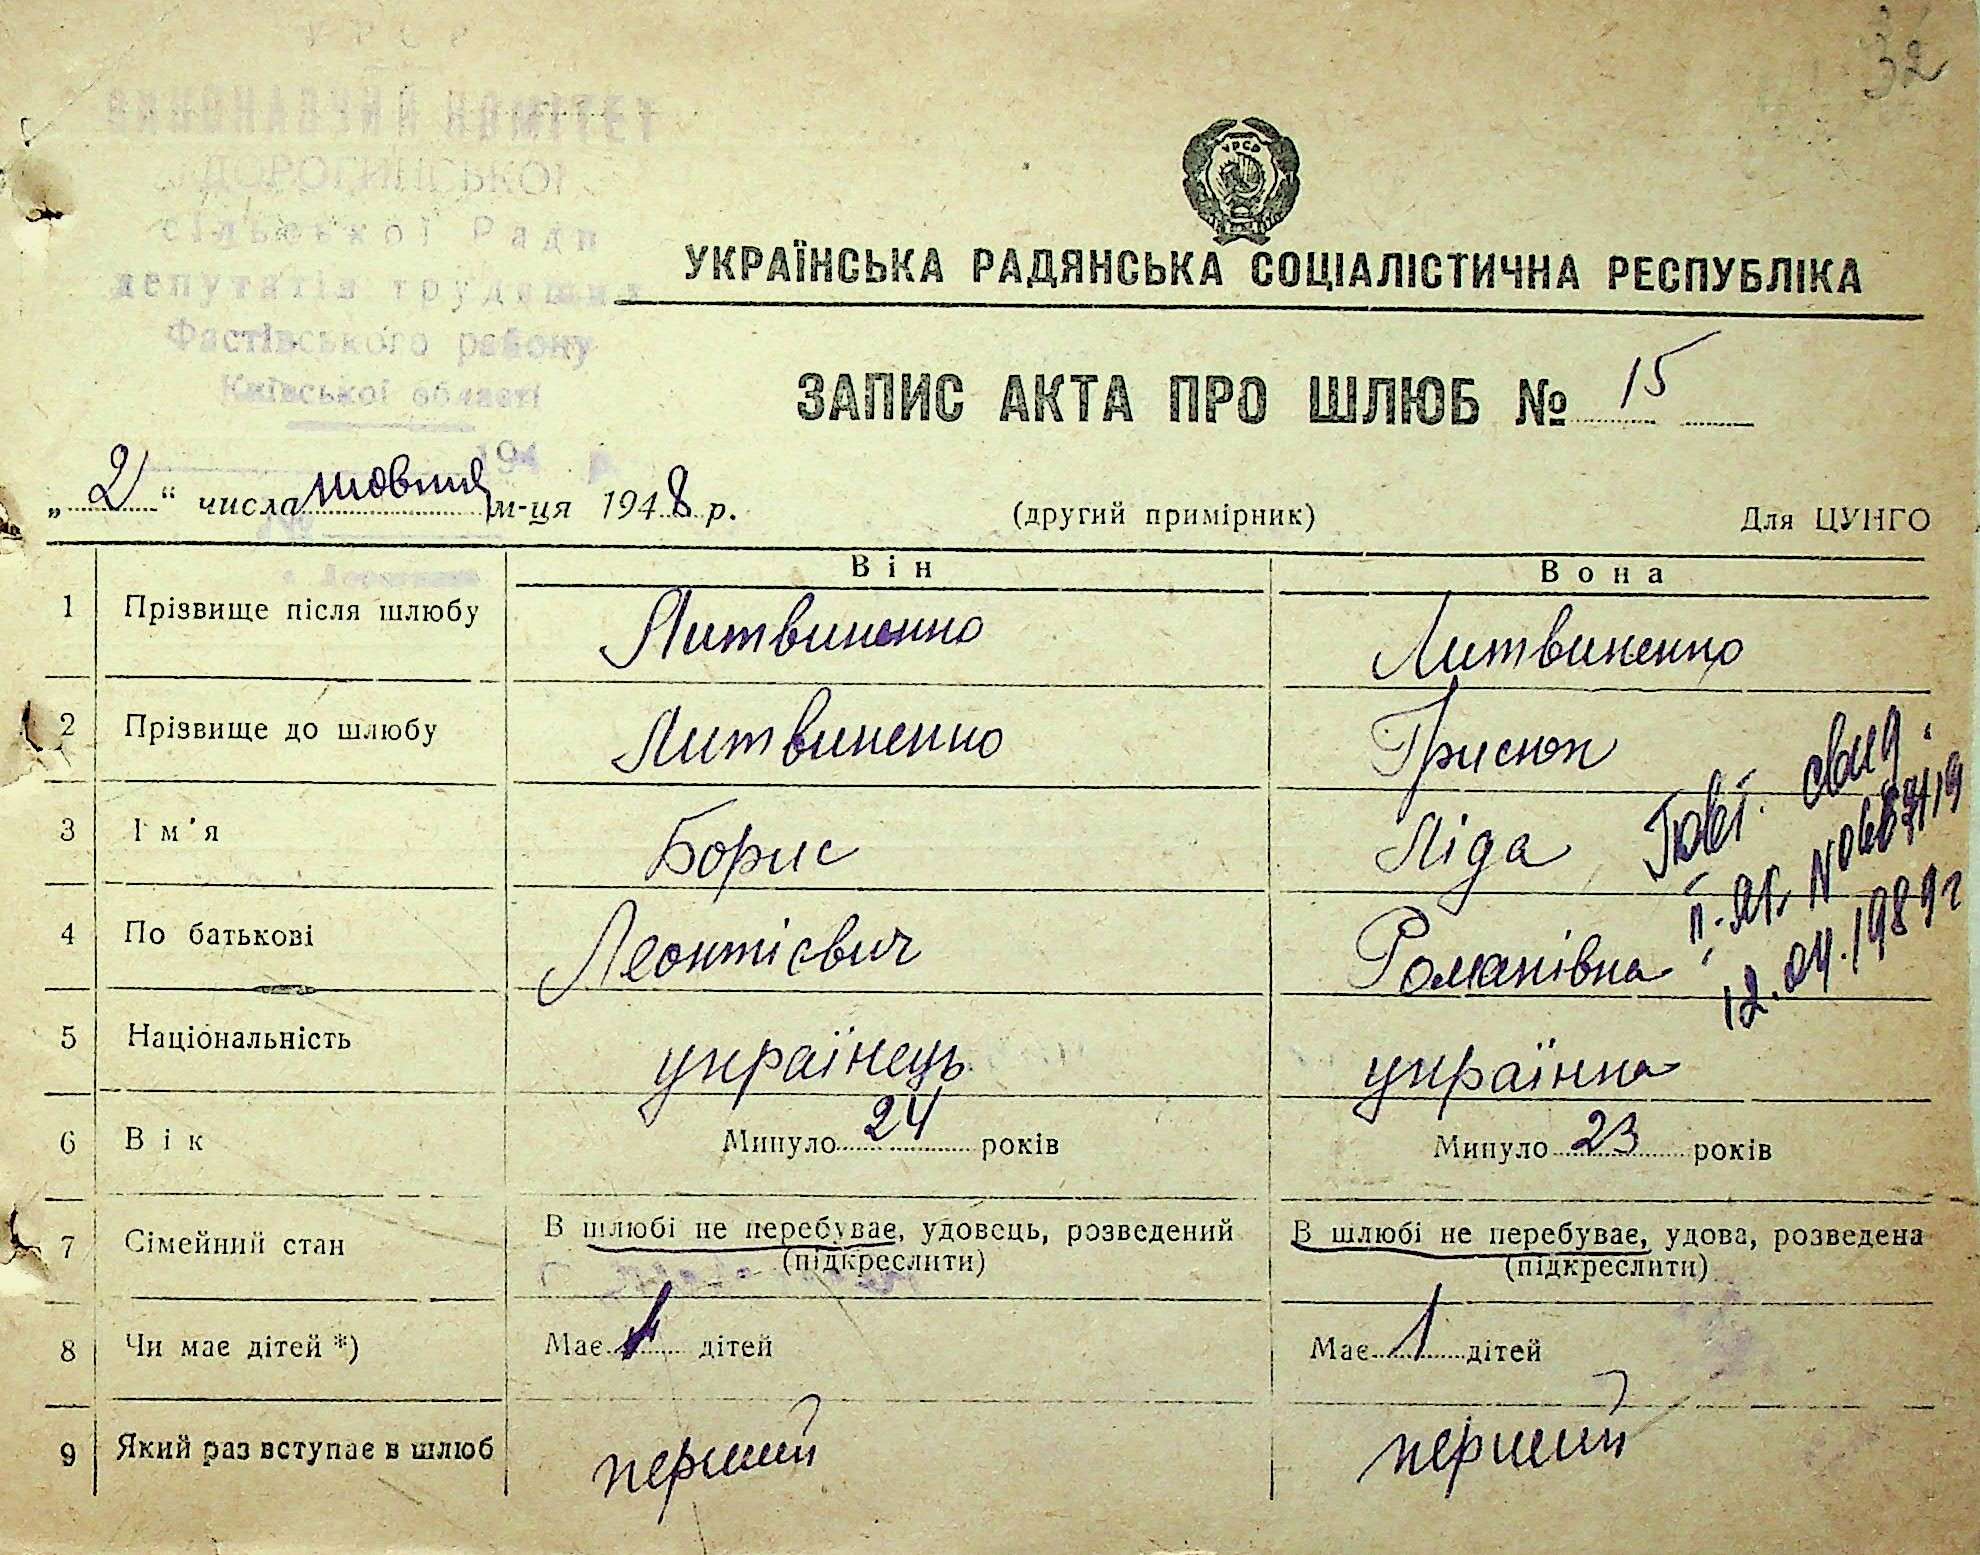 32
УРСР
ВИКОНАВЧИЙ КОМІТЕТ
ДОРОГИНСЬКОЇ
сільської Ради
депутатів трудящих
Фастівського району
Київської області
194 р.
УРСР
УКРАЇНСЬКА РАДЯНСЬКА СОЦІАЛІСТИЧНА РЕСПУБЛІКА
ЗАПИС АКТА ПРО ШЛЮБ № 15
„2“ числа жовтня м-ця 1948 р. (другий примірник) Для ЦУНГО
Він Вона
1 Прізвище після шлюбу Литвиненко Литвиненко
2 Прізвище до шлюбу Литвиненко Грисюк
3 Ім'я Борис Ліда
4 По батькові Леонтієвич Романівна
5 Національність українець українка
6 Вік Минуло 24 років Минуло 23 років
7 Сімейний стан В шлюбі не перебуває, удовець, розведений В шлюбі не перебуває, удова, розведена
(підкреслити) (підкреслити)
8 Чи має дітей *) Має дітей Має 1 дітей
9 Який раз вступає в шлюб перший перший
Повт. свид.
12.04.1989г